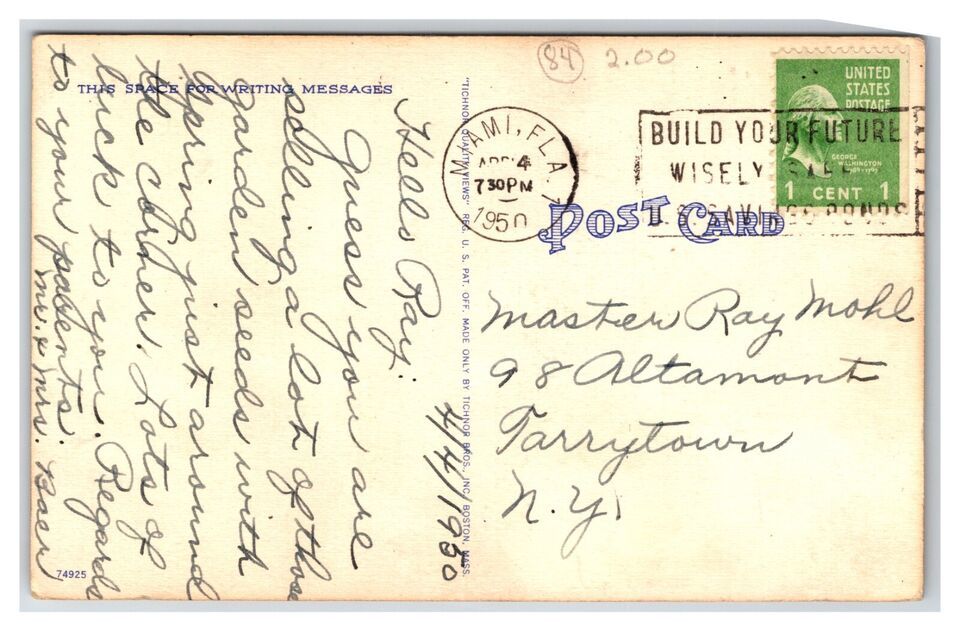 84 2.00
THIS SPACE FOR WRITING MESSAGES
4/4/1950
Hello Ray:
Guess you are
selling a lot of those
garden seeds with
spring just around
the corner. Lots of
luck to you. Regards
to your parents.
Mr. & Mrs. Baer
74925
"TICHNOR QUALITY VIEWS" REG. U. S. PAT. OFF. MADE ONLY BY TICHNOR BROS., INC., BOSTON, MASS.
MIAMI, FLA. 7
APR 4
7 30 PM
1950
BUILD YOUR FUTURE
WISELY SAFELY
U.S. SAVINGS BONDS
UNITED
STATES
POSTAGE
GEORGE
WASHINGTON
1789-1797
1 CENT 1
POST CARD
Master Ray Mohl
98 Altamont
Tarrytown
N.Y.